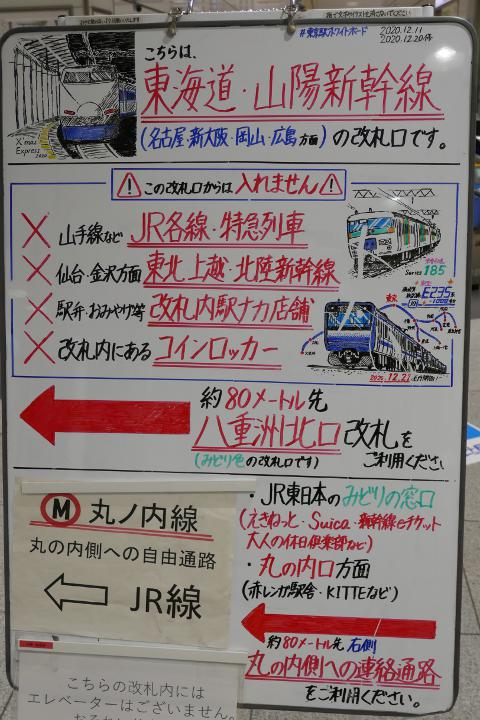 #東京駅ホワイトボード
2020.12.11
2020.12.20作
こちらは、
東海道・山陽新幹線
(名古屋・新大阪・岡山・広島方面)の改札口です。
X'mas
Express
2020
この改札口からは入れません
山手線など JR各線・特急列車
仙台・金沢方面 東北・上越・北陸新幹線
駅弁・おみやげ等 改札内駅ナカ店舗
改札内にある コインロッカー
Series
185
E235系
東京
2020.12.21
約80メートル先
八重洲北口改札を
(みどり色の改札口です) ご利用ください
・JR東日本のみどりの窓口
(えきねっと・Suica・新幹線eチケット
大人の休日倶楽部など)
・丸の内口方面
(赤レンガ駅舎・KITTEなど)
約80メートル先 右側
丸の内側への連絡通路
をご利用ください。
M 丸ノ内線
丸の内側への自由通路
JR線
こちらの改札内には
エレベーターはございません。